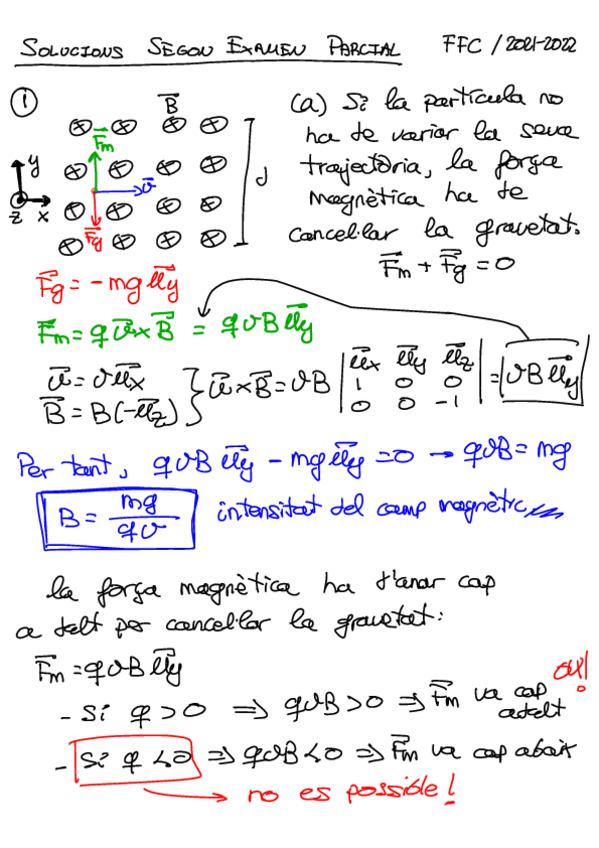 SOLUCIONS SEGON EXAMEN PARCIAL FFC / 2021-2022
① B⃗
(a) Si la partícula no
ha de variar la seva
trajectòria, la força
magnètica ha de
cancel·lar la gravetat.
F⃗m + F⃗g = 0
y
z x
F⃗m
v⃗
F⃗g
d
F⃗g = -mg u⃗y
F⃗m = q v⃗ x B⃗ = qvB u⃗y
v⃗ = v u⃗x
B⃗ = B(-u⃗z)
} v⃗ x B⃗ = vB | u⃗x u⃗y u⃗z | = vB u⃗y
1 0 0
0 0 -1
Per tant, qvB u⃗y - mg u⃗y = 0 → qvB = mg
B = mg / qv intensitat del camp magnètic
la força magnètica ha d'anar cap
a dalt per cancel·lar la gravetat:
F⃗m = qvB u⃗y
- Si q > 0 ⇒ qvB > 0 ⇒ F⃗m va cap
adalt
- Si q < 0 ⇒ qvB < 0 ⇒ F⃗m va cap abaix
→ no es possible!